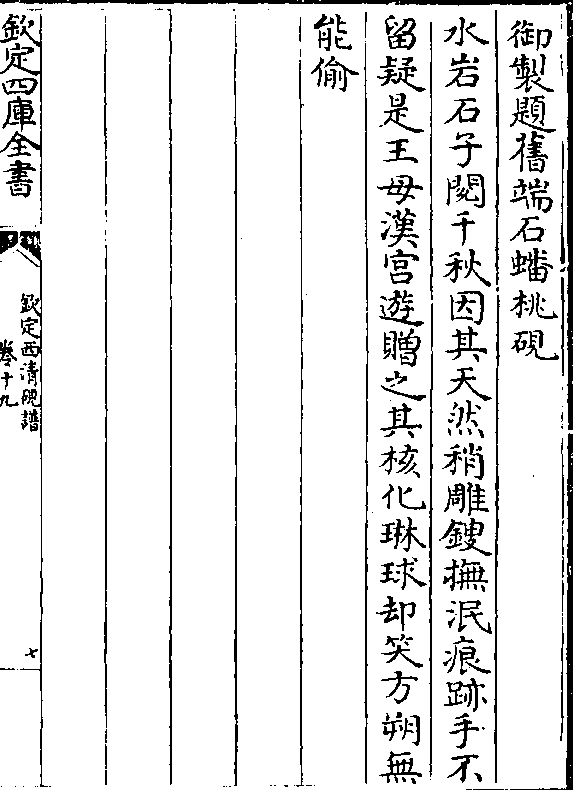 御製題舊端石蟠桃硯
水岩石子閱千秋因其天然稍雕鎪撫泯痕跡手不
留疑是王母漢宮遊贈之其核化琳球却笑方朔無
能偷
欽定四庫全書
欽定西清硯譜
卷十九
七